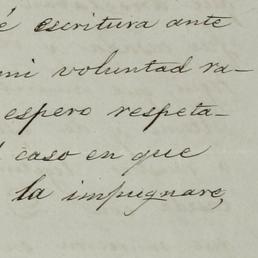 é escritura ante
mi voluntad ra-
espero respeta-
caso en que
la impugnare,